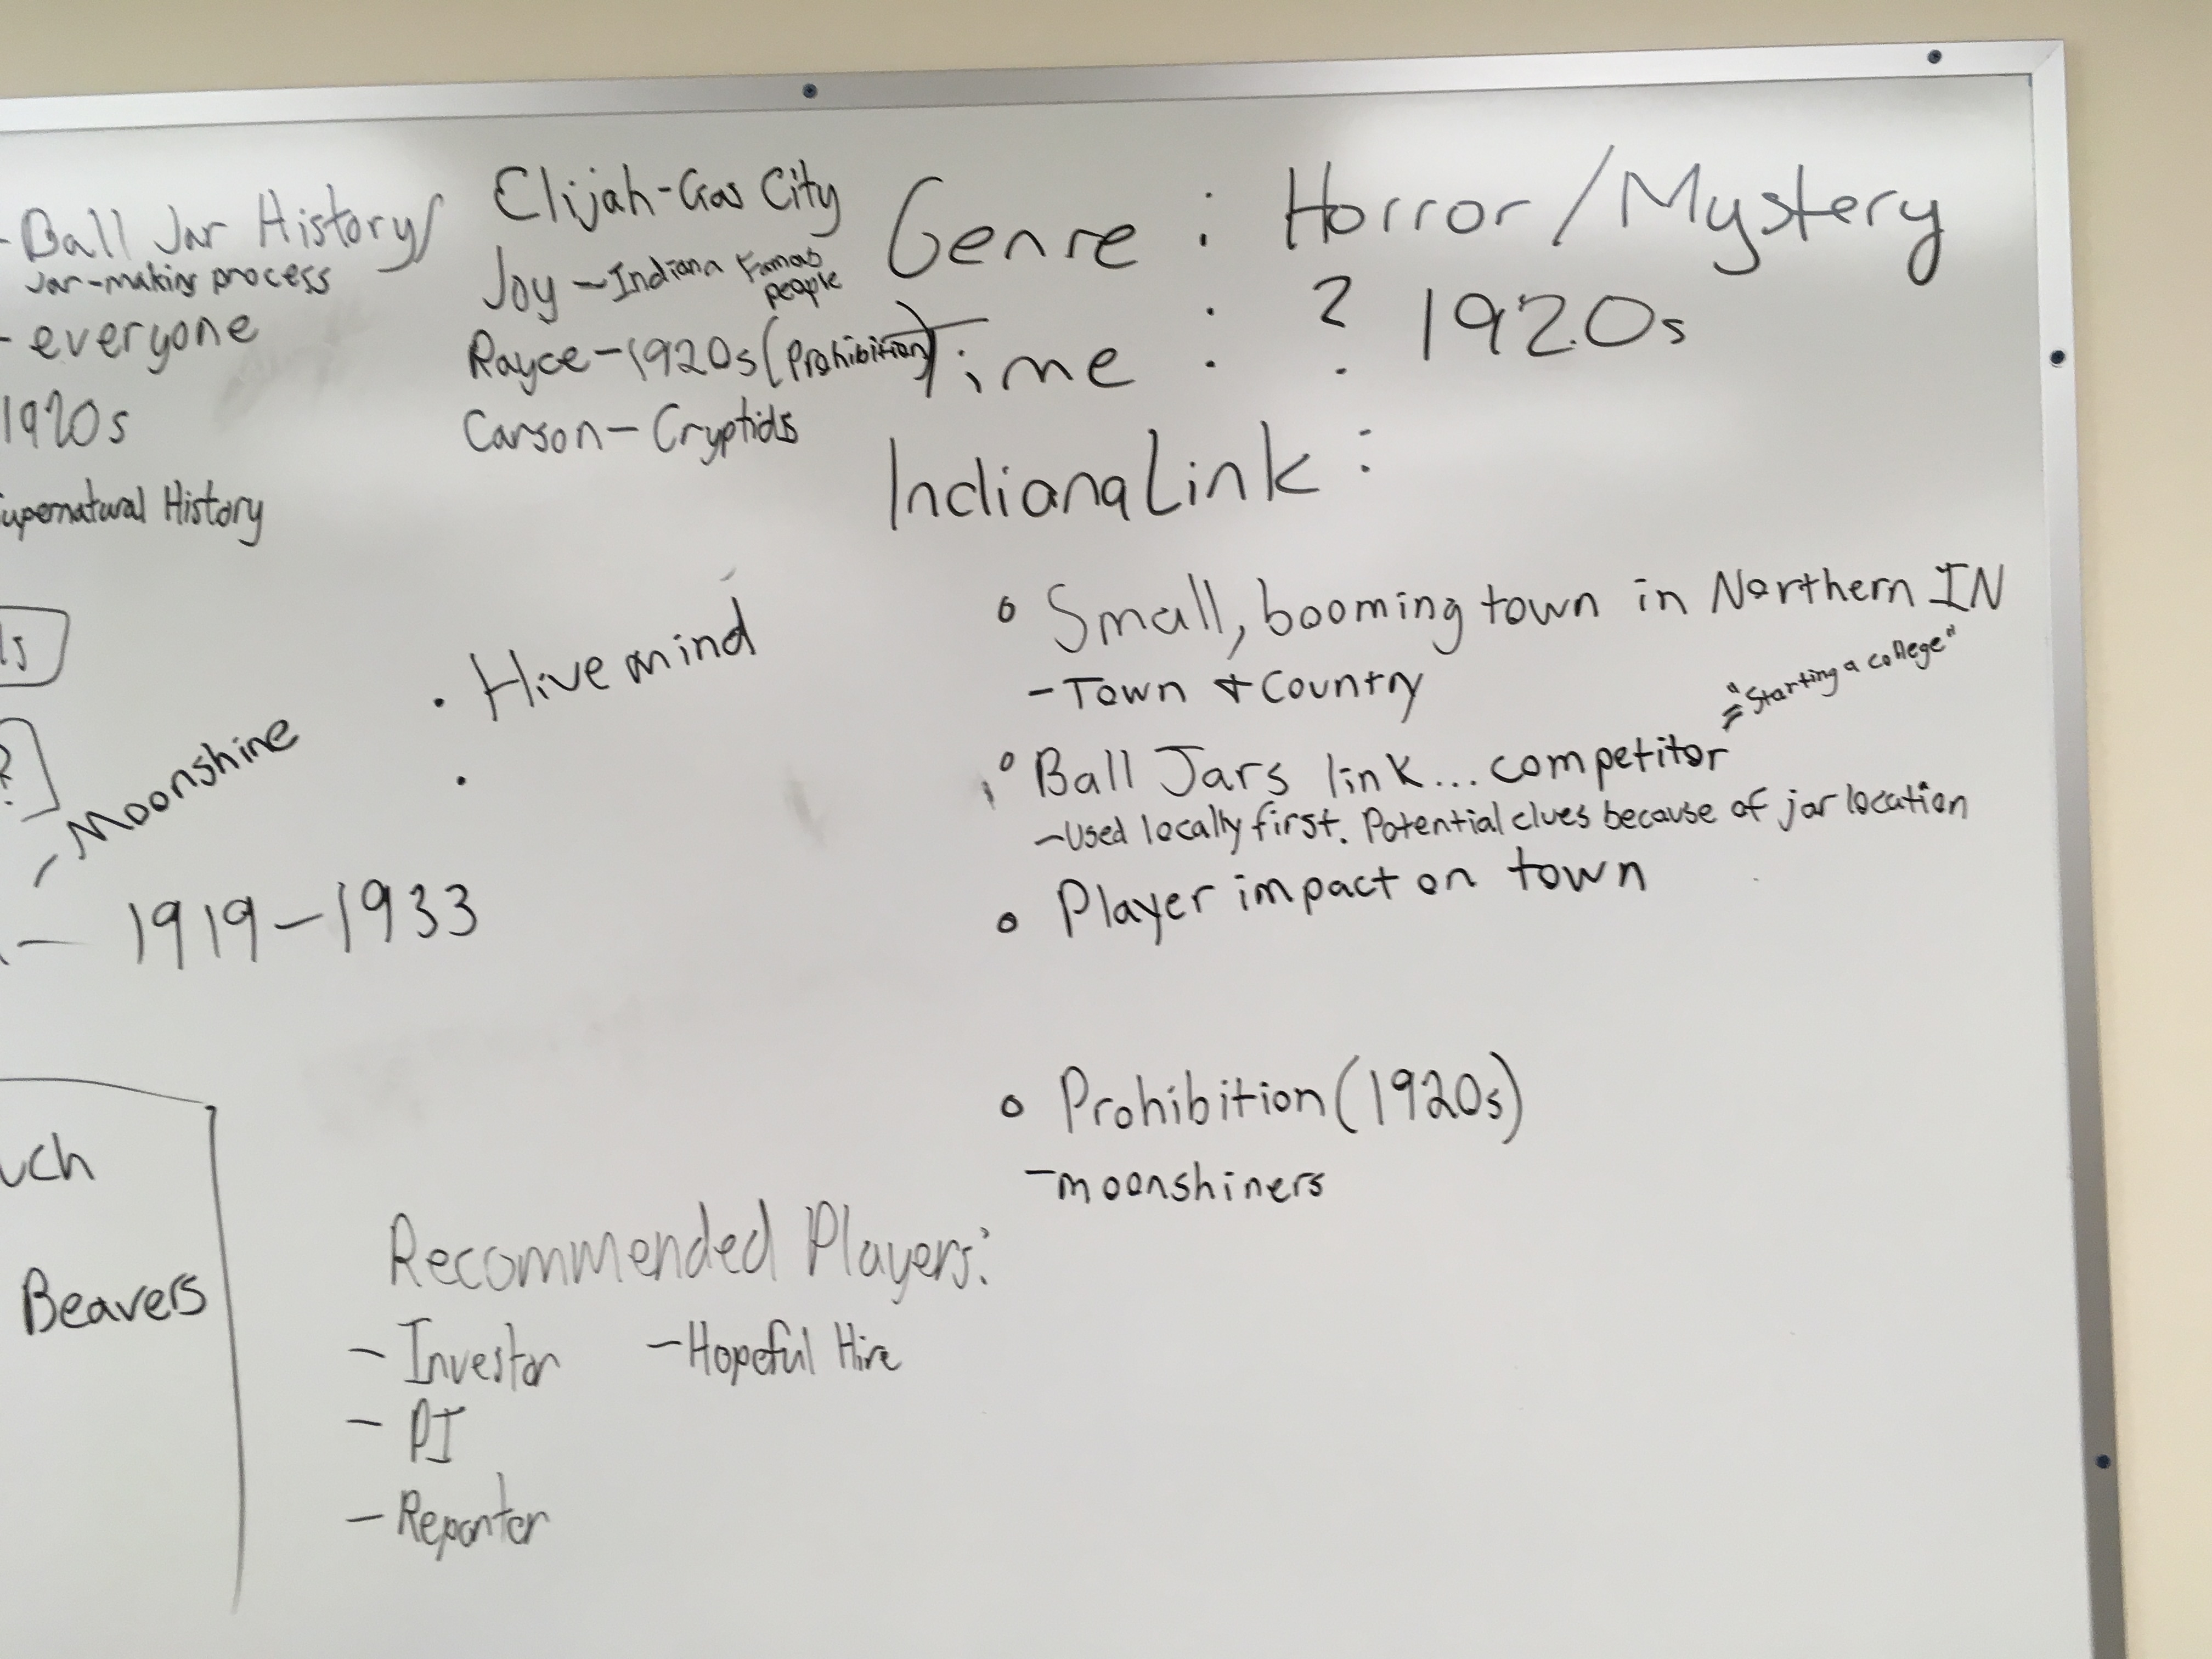 - Ball Jar History/
Jar-making process
- everyone
1920s
upernatural History
Elijah-Gas City
Joy - Indiana Famous people
Rayce - 1920s (Prohibition)
Carson - Cryptids
Genre : Horror/Mystery
Time : ? 1920s
Indiana Link :
° Small, booming town in Northern IN
- Town + Country
° Ball Jars link... competitor = "Starting a college"
- Used locally first. Potential clues because of jar location
° Player impact on town
° Prohibition (1920s)
- moonshiners
• Hivemind
•
Moonshine
- 1919-1933
uch
Beavers
Recommended Players:
- Investor - Hopeful Hire
- PI
- Reporter